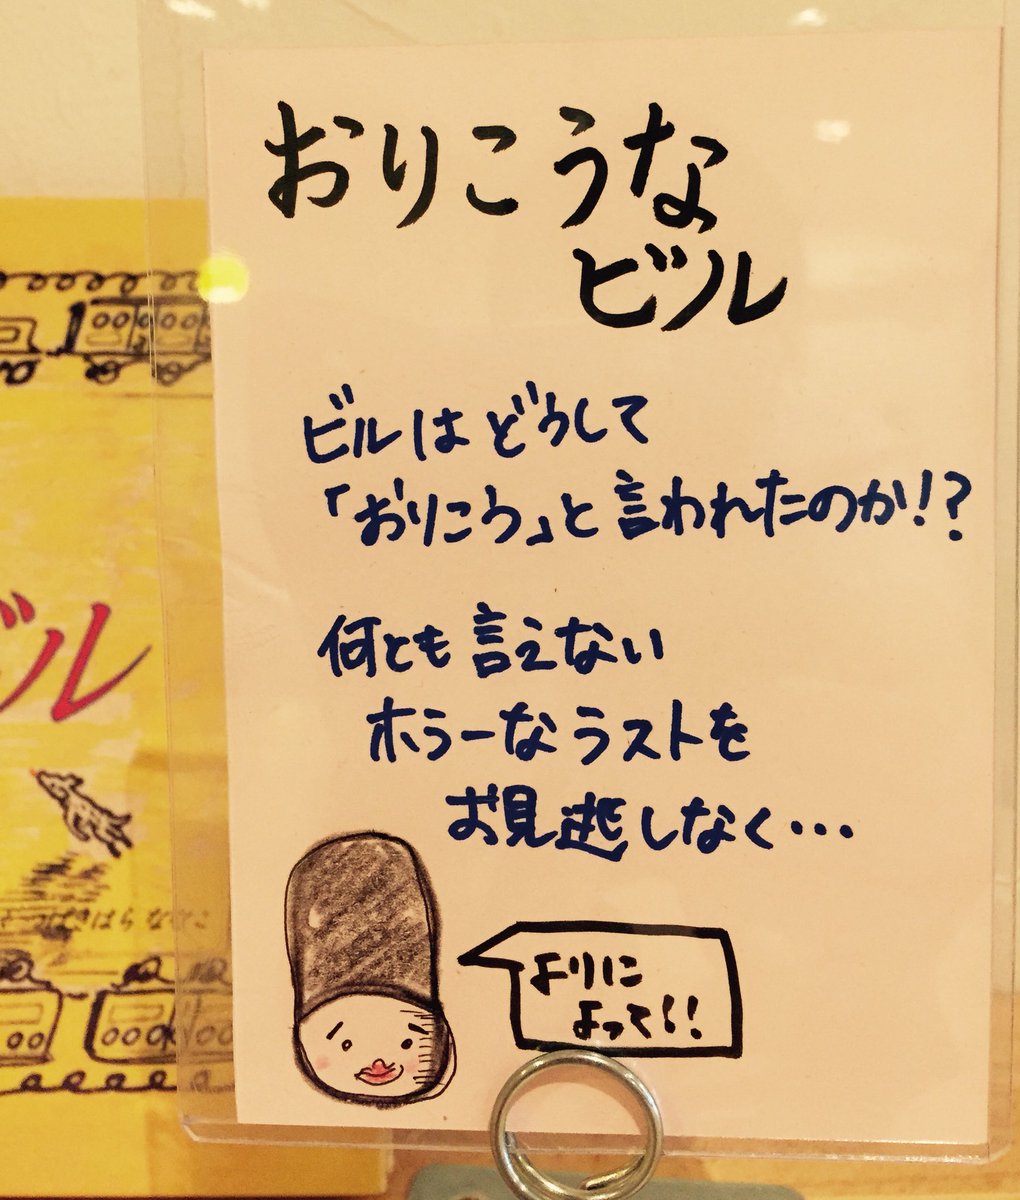 おりこうな
ビル
ビルはどうして
「おりこう」と言われたのか!?
何とも言えない
ホラーなラストを
お見逃しなく・・・
よりに
よって!!
ビル